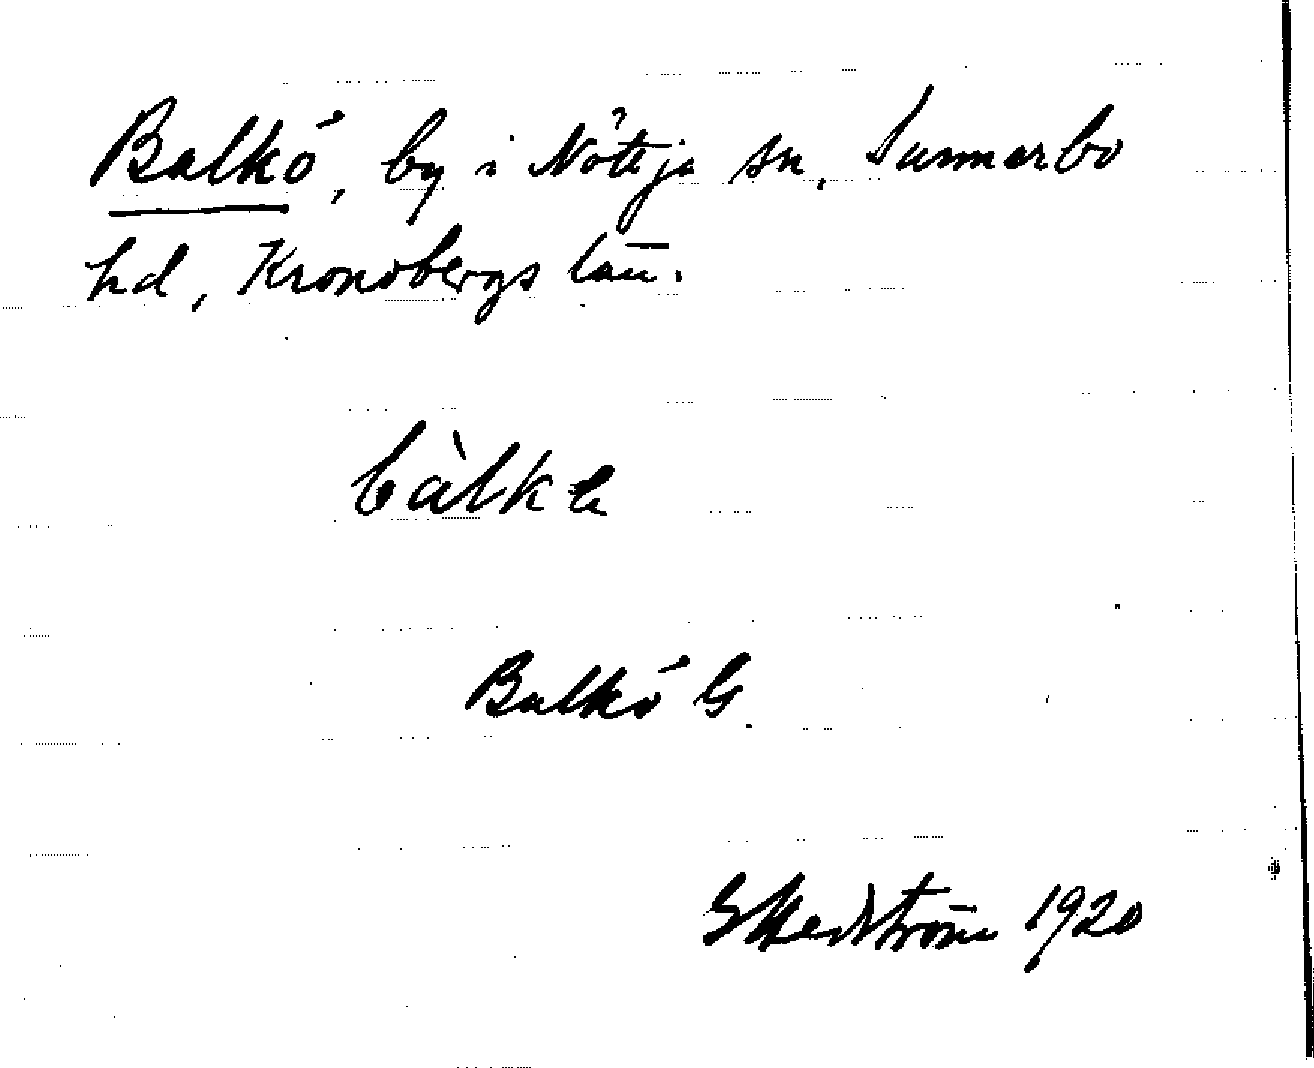 Balkö, by i Nöttja sn, Sunnerbo
hd, Kronobergs län.
bàlkə
Balkö G.
G Hedström 1920